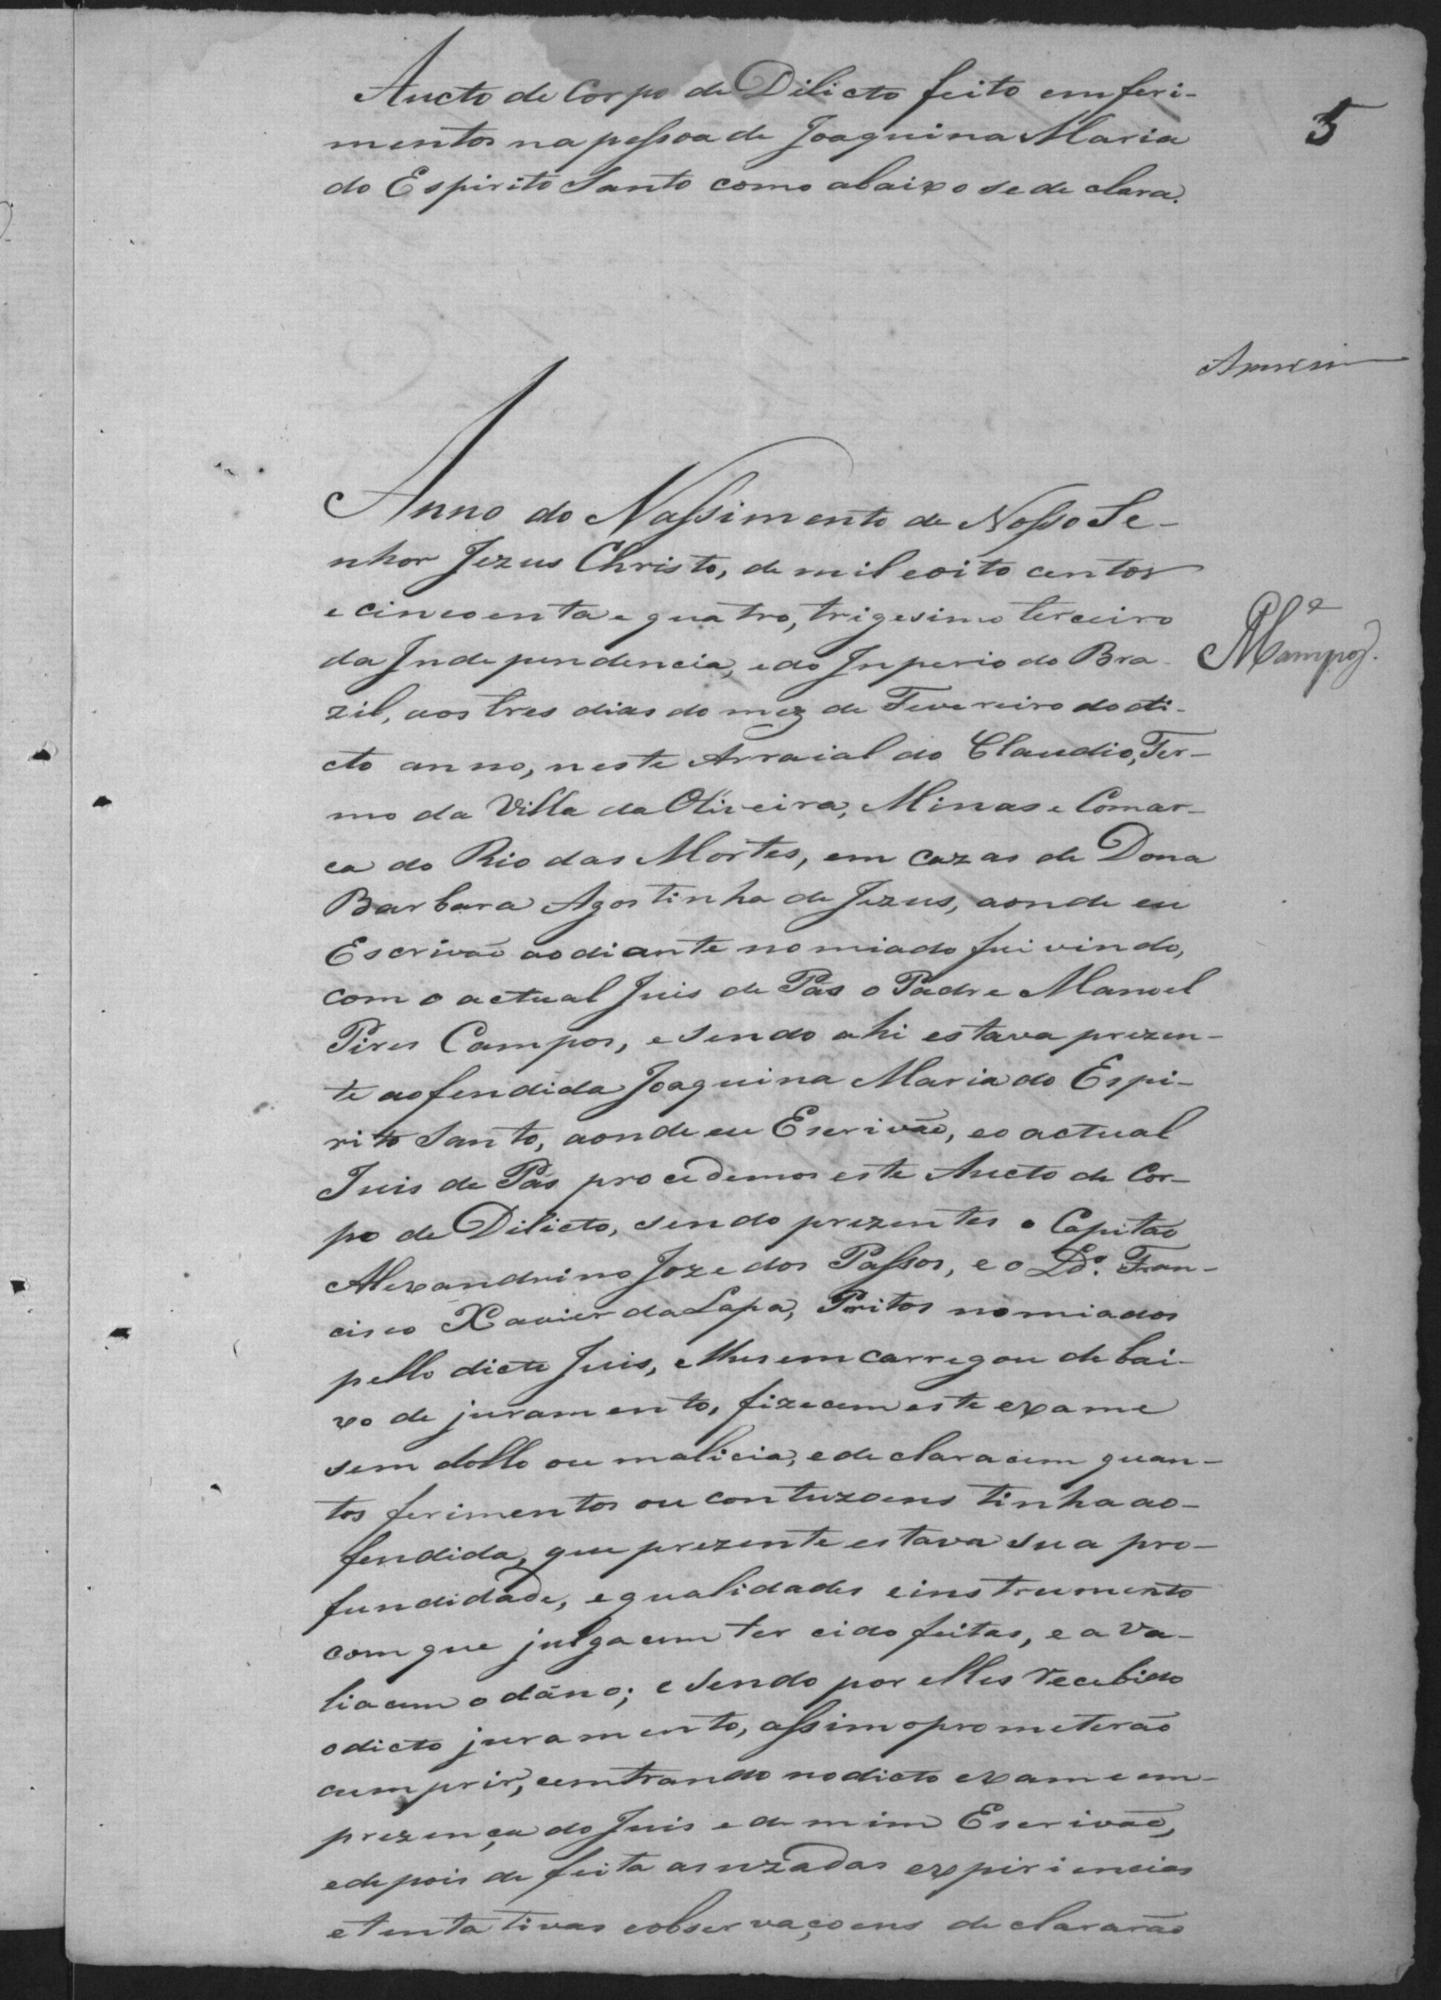 Aucto de Corpo de Dilicto feito em feri-
mentos na pessoa de Joaquina Maria
do Espirito Santo como abaixo se declara.
5
Anno do Nassimento de Nosso Se-
nhor Jezus Christo, de mil e oito centos
e cincoenta e quatro, trigesimo terceiro
da Independencia, e do Inperio do Bra-
zil, aos tres dias do mez de Fevereiro do di-
cto anno, neste Arraial do Claudio, Ter-
mo da Villa da Oliveira, Minas e Comar-
ca do Rio das Mortes, em cazas de Dona
Barbara Agostinha de Jezus, aonde eu
Escrivão ao diante nomiado fui vindo,
com o actual Juis de Pás o Padre Manoel
Pires Campos, e sendo ahi estava prezen-
te a ofendida Joaquina Maria do Espi-
rito Santo, aonde eu Escrivão, e o actual
Juis de Pás procedemos este Aucto de Cor-
po de Dilicto, sendo prezentes o Capitão
Alexandrino Joze dos Passos, e o Ldº. Fran-
cisco Xavier da Lapa, Peritos nomiados
pello dicto Juis, e lhes emcarregou debai-
xo de juramento, fizecem este exame
sem dollo ou malicia, e declaracem quan-
tos ferimentos ou contuzoens tinha a o-
fendida, que prezente estava sua pro-
fundidade, e qualidades e instrumento
com que julgacem ter cido feitas, e ava-
liacem o dãno; e sendo por elles recebido
o dicto juramento, assim o prometerão
cumprir, e emtrando no dicto exame em-
prezença do Juis e de mim Escrivão,
e depois de feita as uzadas expiriencias
e tentativas e observaçoens declararão